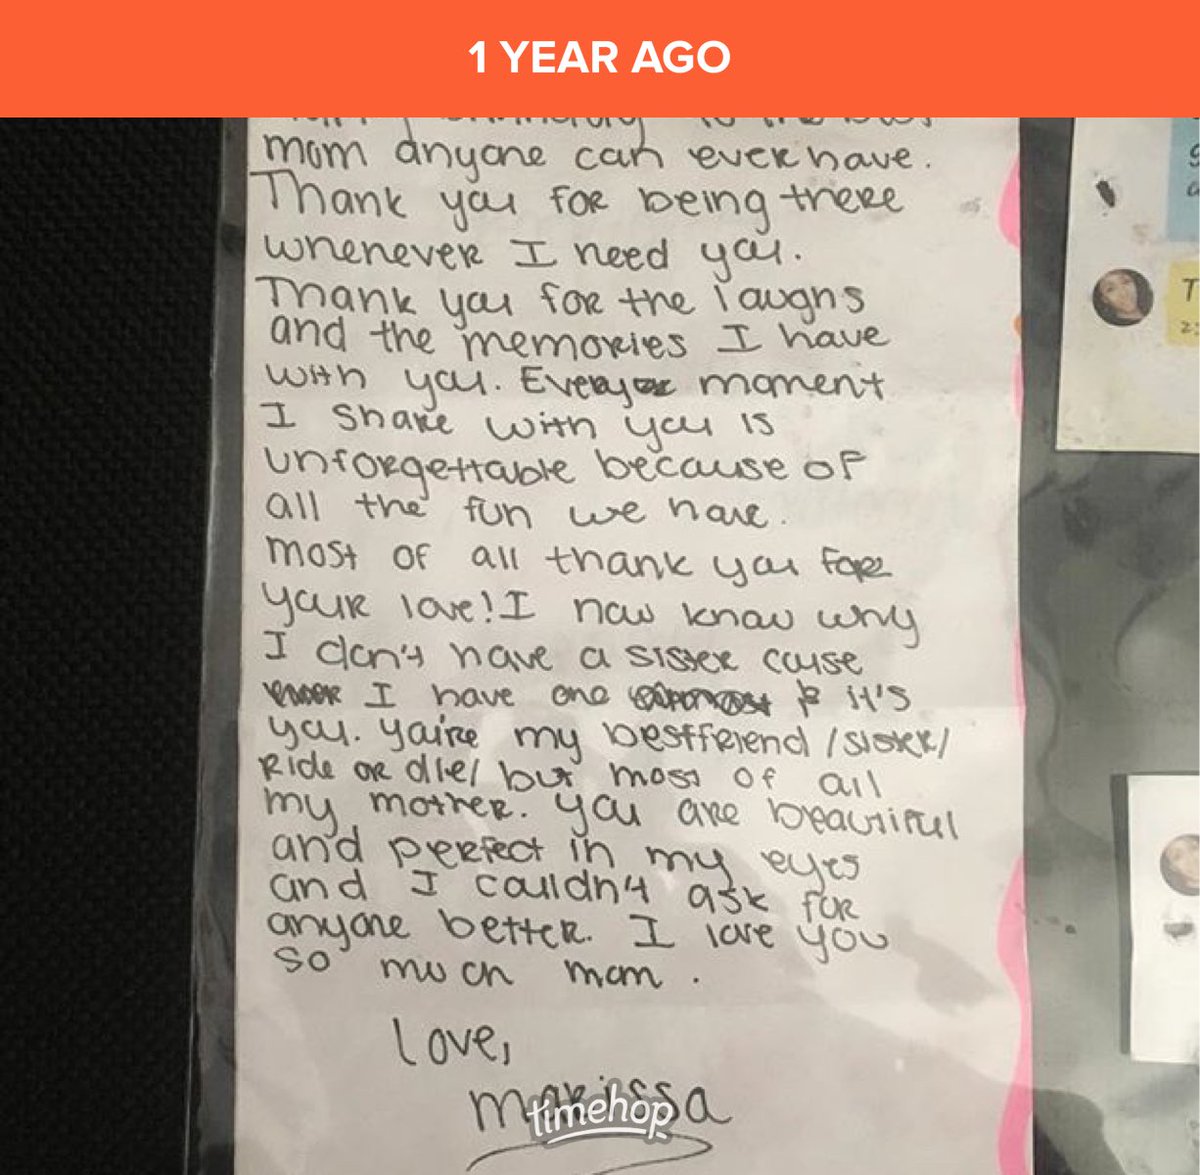 1 YEAR AGO
mom anyone can ever have.
Thank you for being there
whenever I need you.
Thank you for the laughs
and the memories I have
with you. Every moment
I share with you is
unforgettable because of
all the fun we have.
most of all thank you for
your love! I now know why
I don't have a sister cause
I have one it's
you. you're my bestfreiend /sister/
Ride or die/ but most of all
my mother. you are beautiful
and perfect in my eyes
and I couldn't ask for
anyone better. I love you
so much mom.
Love,
marissa
timehop
T